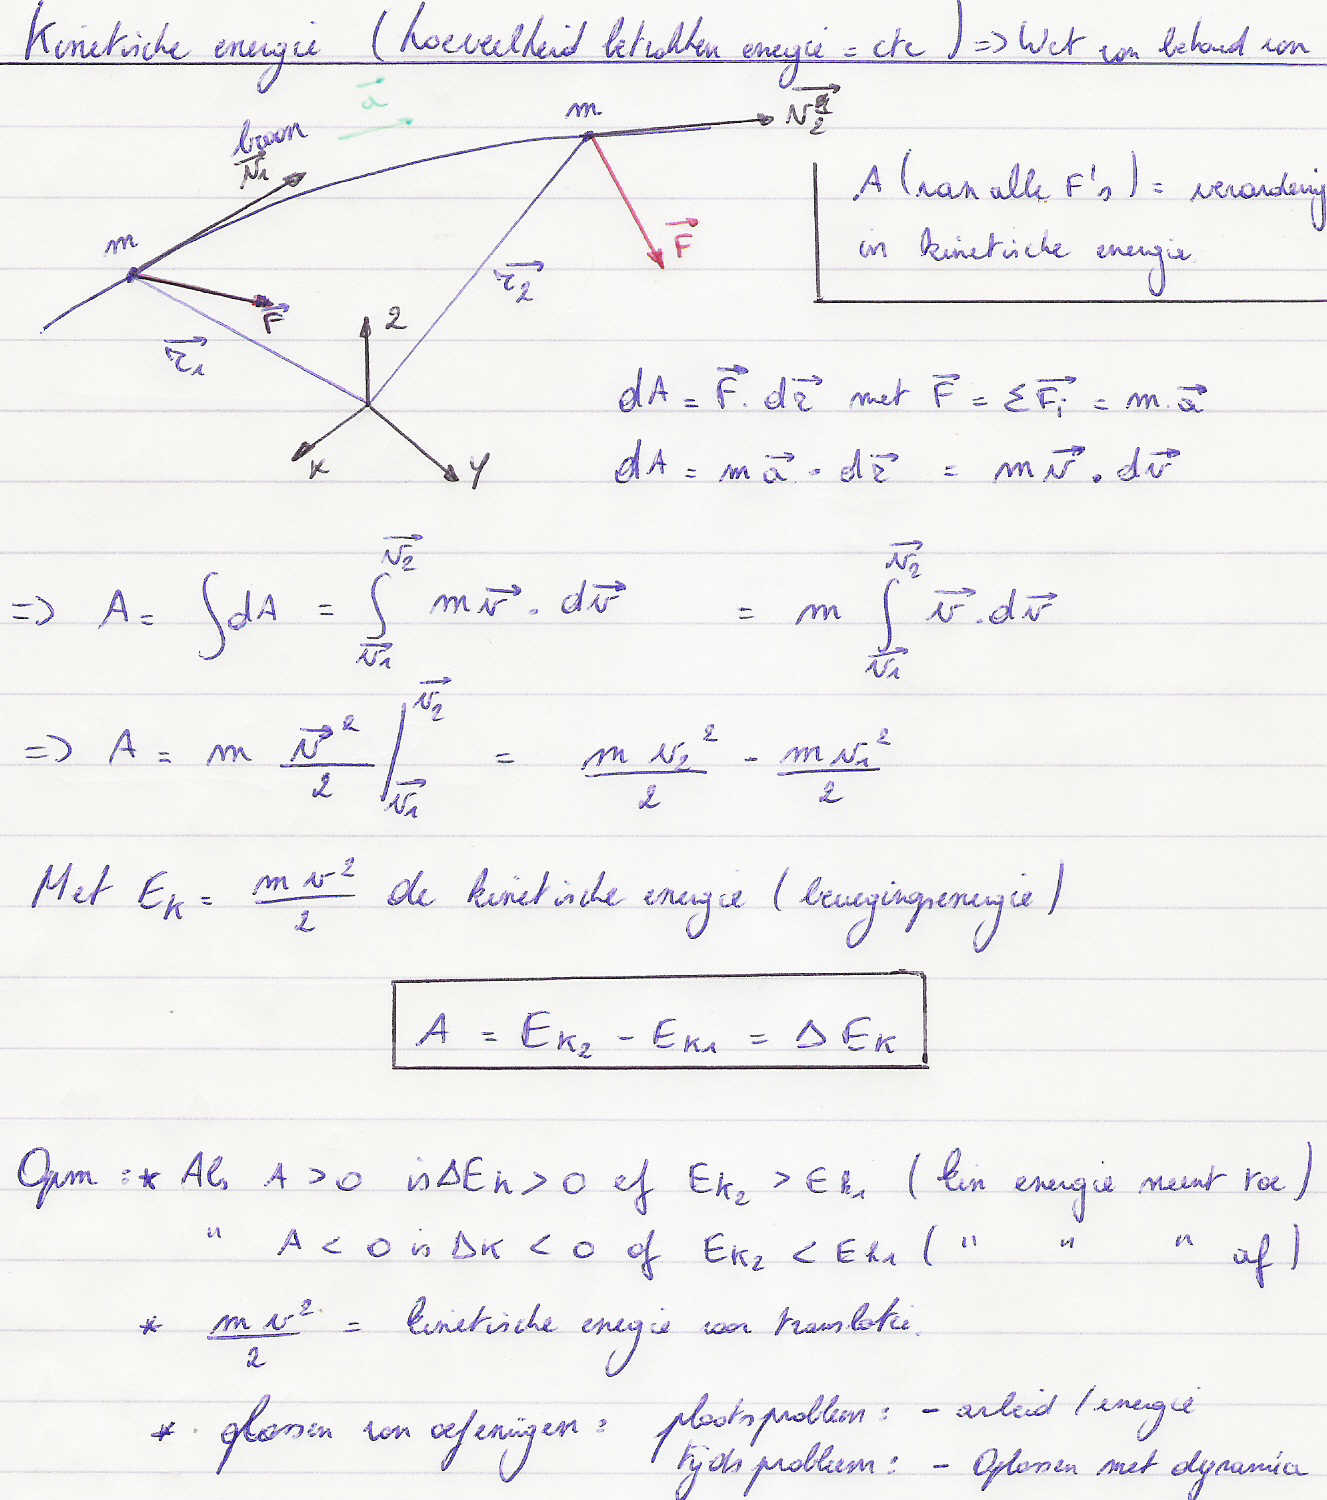 Kinetische energie (hoeveelheid betrokken energie = cte) => Wet van behoud van
a⃗
m
v⃗₂
baan
v⃗₁
A (van alle F's) = verandering
in kinetische energie
m
F⃗
r⃗₂
F⃗
z
r⃗₁
x
y
dA = F⃗ . dr⃗ met F⃗ = ΣF⃗ᵢ = m . a⃗
dA = m a⃗ . dr⃗ = m v⃗ . dv⃗
=> A = ∫dA = ∫_{v⃗₁}^{v⃗₂} m v⃗ . dv⃗ = m ∫_{v⃗₁}^{v⃗₂} v⃗ . dv⃗
=> A = m v⃗²/2 |_{v⃗₁}^{v⃗₂} = m v₂²/2 - m v₁²/2
Met E_K = m v²/2 de kinetische energie (bewegingsenergie)
A = E_{K₂} - E_{K₁} = Δ E_K
Opm : * Als A > 0 is ΔE_k > 0 of E_{K₂} > E_{k₁} (kin energie neemt toe)
" A < 0 is ΔK < 0 of E_{K₂} < E_{k₁} ( " " " af)
* m v²/2 = kinetische energie voor translatie.
* oplossen van oefeningen : plaatsproblem : - arbeid / energie
tijdsprobleem : - Oplossen met dynamica